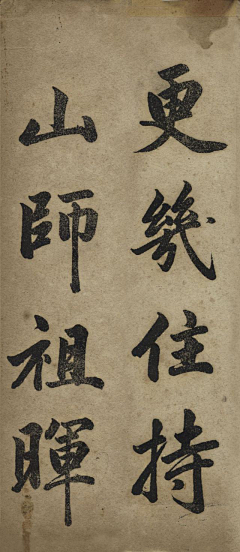 更幾住持
山師祖暉